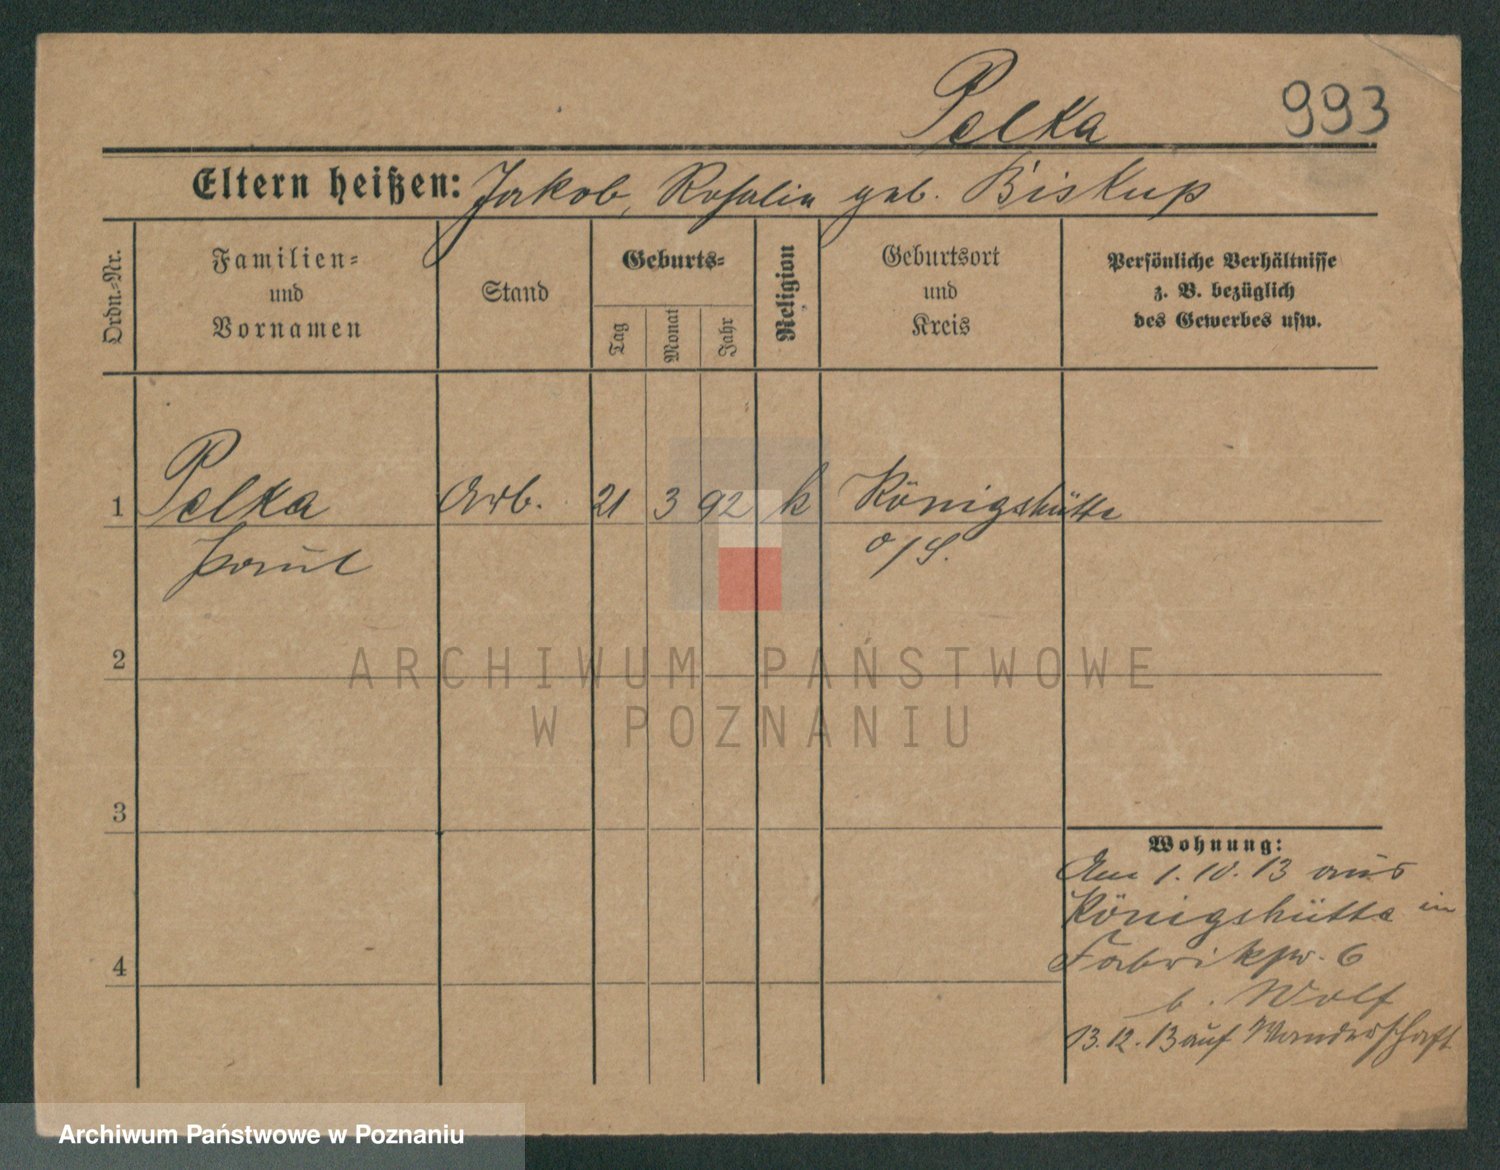 Pelka 993
Eltern heißen: Jakob, Rosalie geb. Biskup
Ordn.-Nr.
Familien-
und
Vornamen
Stand
Geburts-
Tag
Monat
Jahr
Religion
Geburtsort
und
Kreis
Persönliche Verhältnisse
z. B. bezüglich
des Gewerbes usw.
1 Pelka Arb. 21 3 92 k Königshütte
Paul o/S.
2
3
4
ARCHIWUM PAŃSTWOWE
W POZNANIU
Wohnung:
Am 1.10.13 aus
Königshütte in
Fabrikstr. 6
b. Wolf
13.12.13 auf Wanderschaft
Archiwum Państwowe w Poznaniu